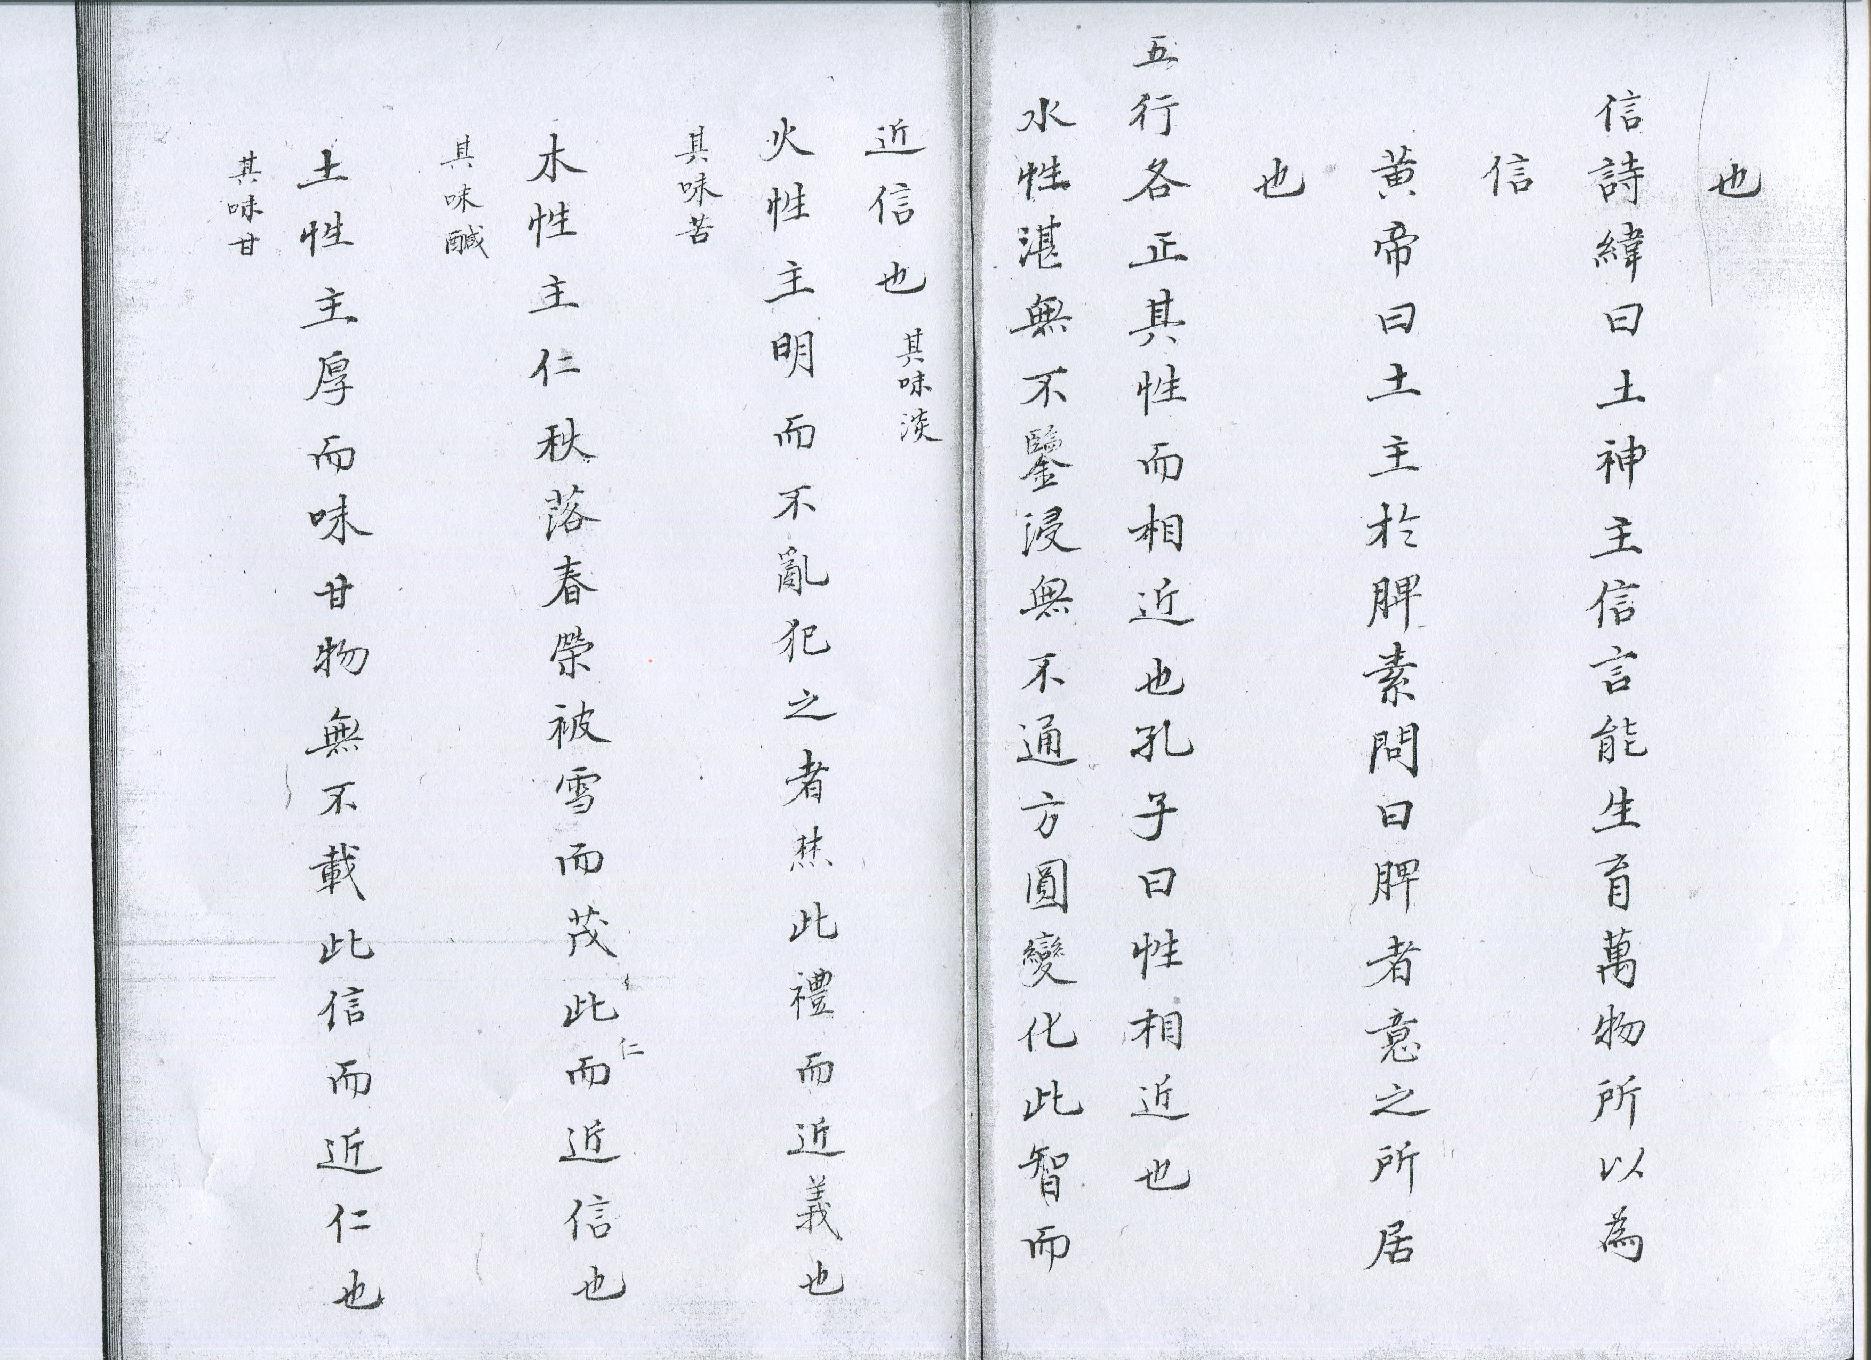 也
信詩緯曰土神主信言能生育萬物所以為
信
黄帝曰土主於脾素問曰脾者意之所居
也
五行各正其性而相近也孔子曰性相近也
水性湛無不鑒浸無不通方圓變化此智而
近信也 其味淡
火性主明而不亂犯之者焦此禮而近義也
其味苦
木性主仁秋落春榮被雪而茂此仁而近信也
其味醎
土性主厚而味甘物無不載此信而近仁也
其味甘